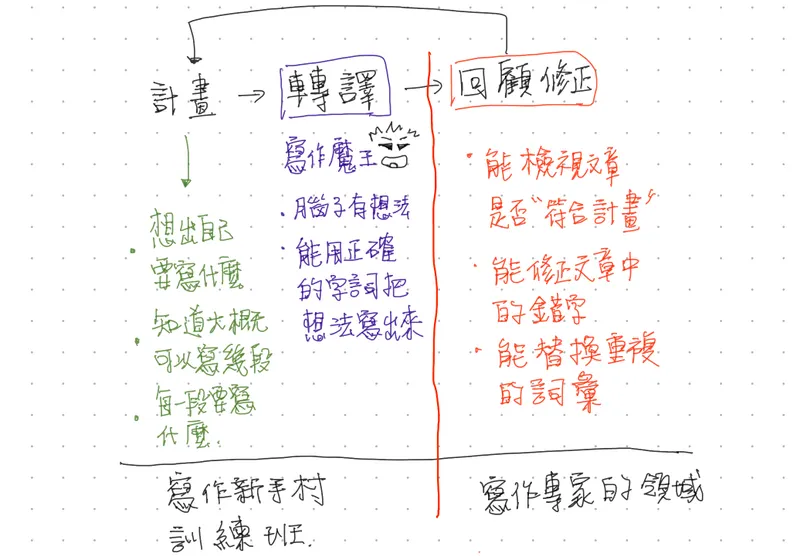 計畫 → 轉譯 → 回顧修正
• 想出自己
要寫什麼
• 知道大概
可以寫幾段
• 每一段要寫
什麼.
寫作魔王
• 腦子有想法
• 能用正確
的字詞把
想法寫出來
• 能檢視文章
是否“符合計畫”
• 能修正文章中
的錯字
• 能替換重複
的詞彙
寫作新手村
訓練班.
寫作專家的領域